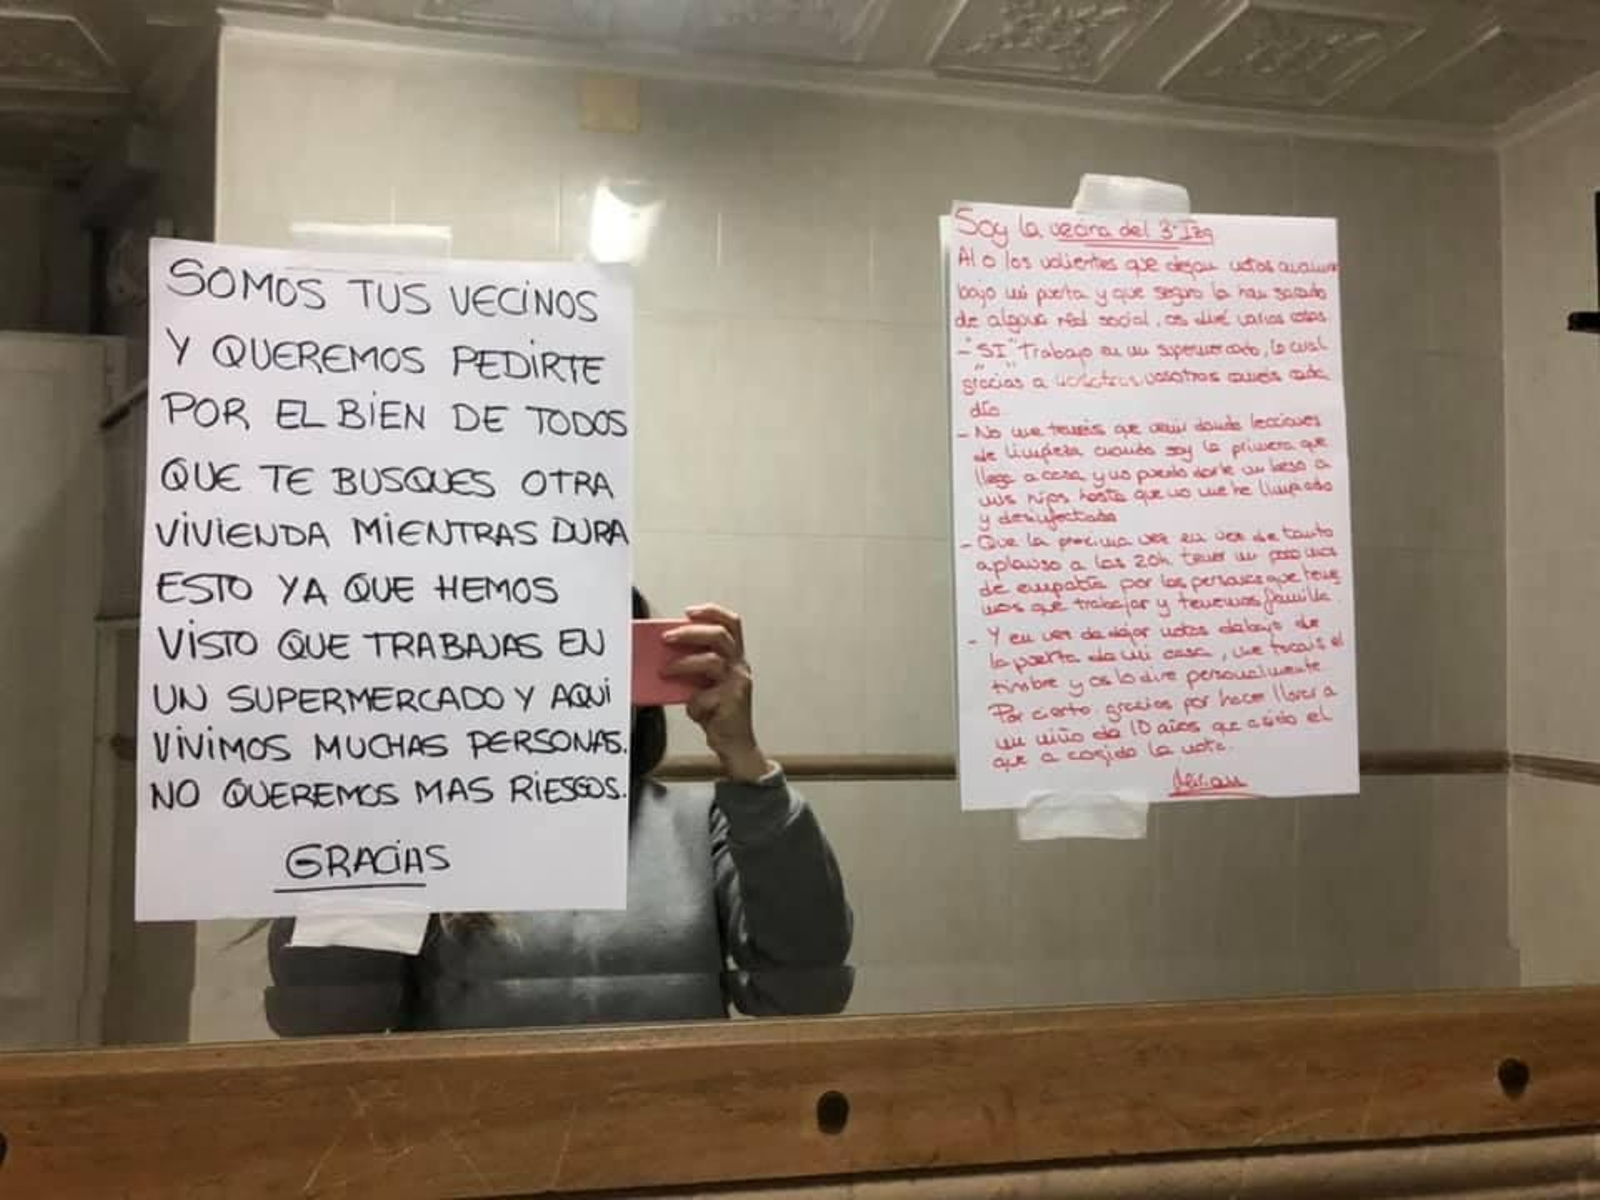 SOMOS TUS VECINOS
Y QUEREMOS PEDIRTE
POR EL BIEN DE TODOS
QUE TE BUSQUES OTRA
VIVIENDA MIENTRAS DURA
ESTO YA QUE HEMOS
VISTO QUE TRABAJAS EN
UN SUPERMERCADO Y AQUI
VIVIMOS MUCHAS PERSONAS.
NO QUEREMOS MAS RIESGOS.
GRACIAS
Soy la vecina del 3º Izq
Al o los valientes que dejan notas
bajo mi puerta y que seguro la han sacado
de alguna red social, os diré varias cosas
- "SI" Trabajo en un supermercado, lo cual
gracias a nosotros vosotros cada
día.
- No me teneis que venir dando lecciones
de limpieza cuando soy la primera que
llega a casa y no puedo darle un beso a
mis hijos hasta que no me he limpiado
y desinfectado
- Que la proxima vez en vez de tanto
aplauso a las 20h tener un poco mas
de empatía por las personas que tene
mos que trabajar y tenemos familia.
- Y en vez de dejar notas debajo de
la puerta de mi casa, me tocais el
timbre y os lo diré personalmente
Por cierto gracias por hacer llorar a
un niño de 10 años que a sido el
que a cogido la nota.